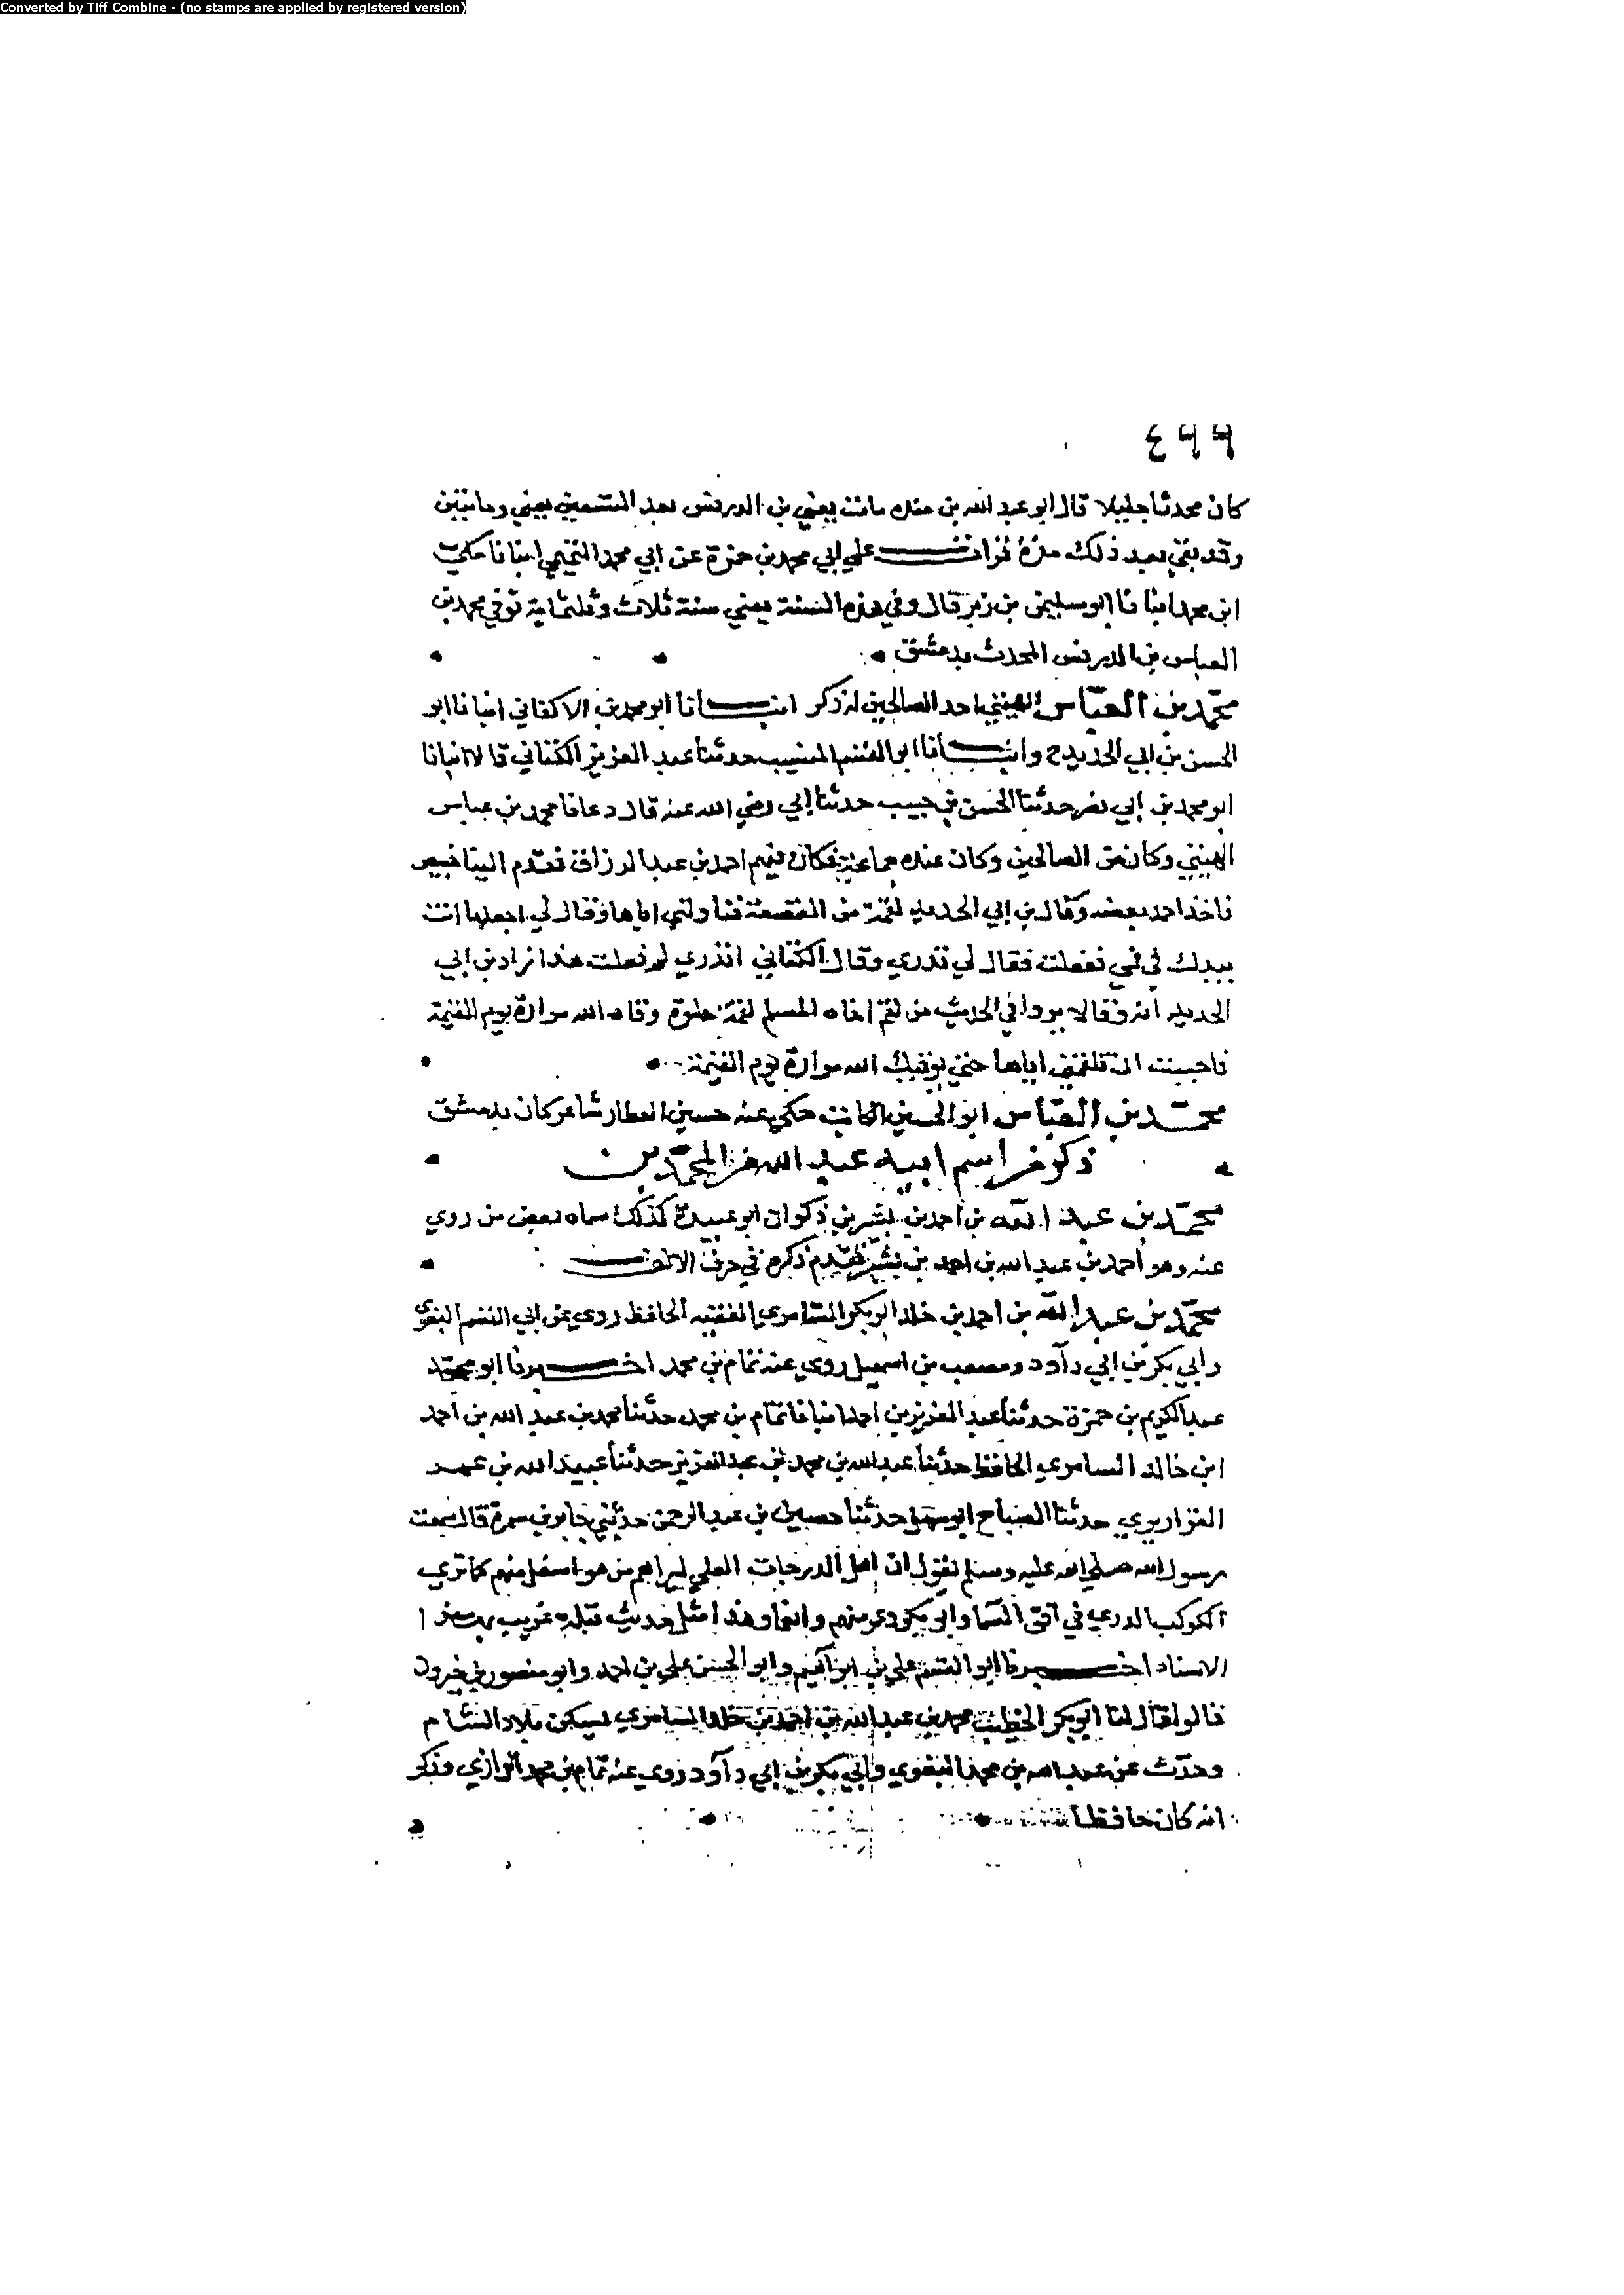 Converted by Tiff Combine - (no stamps are applied by registered version)
٤٩٩
كان محدثا جليلا قال ابو عبد الله بن منده مات يعني بن الدرفس بعد التسعين يعني ومايتين
وقد بقي بعد ذلك مدة قرات على ابي محمد بن حمزة عن ابي محمد التميمي انبانا مكي
ابن محمد انبانا ابو سليمن بن زبر قال وفي هذه السنة يعني سنة ثلاث وثلثماية توفي محمد بن
العباس بن الدرفس المحدث بدمشق
محمد بن العباس الهيتي احد الصالحين له ذكر انبانا ابو محمد بن الاكفاني انبانا ابو
الحسن بن ابي الحديد ح وانبانا ابو القسم النسيب حدثنا عبد العزيز الكتاني قالا انبانا
ابو محمد بن ابي نصر حدثنا الحسن بن حبيب حدثنا ابي رضي الله عنه قال دعانا محمد بن عباس
الهيتي وكان من الصالحين وكان عنده جماعة فكان فيهم احمد بن عبد الرزاق فقدم الينا خبيص
فاخذ احمد بعضه وقال بن ابي الحديد لقمة من القصعة فناولني اياها وقال لي اجعلها انت
بيدك في فمي ففعلت فقال لي تدري وقال الكتاني اتدري لم فعلت هذا زاد بن ابي
الحديد انه وقالا يروا في الحديث من لقم اخاه المسلم لقمة حلوة وقاه الله مرارة يوم القيمة
فاحببت ان تلقمني اياها حتى يوقيك الله مرارة يوم القيمة
محمد بن العباس ابو الحسين الكاتب حكى عنه حسين العطار شاعر كان بدمشق
ذكر من اسم ابيه عبد الله من المحمدين
محمد بن عبد الله بن احمد بن بشر بن ذكوان ابو عبيدة كذلك سماه بعض من روى
عنه وهو احمد بن عبد الله بن احمد بن بشر تقدم ذكره في حرف الالف
محمد بن عبد الله بن احمد بن خلد ابو بكر السامري الفقيه الحافظ روى عن ابي القسم البغوي
وابي بكر بن ابي دآود ومصعب بن اسمعيل روى عنه تمام بن محمد اخبرنا ابو محمد
عبد الكريم بن حمزة حدثنا عبد العزيز بن احمد انبانا تمام بن محمد حدثنا محمد بن عبد الله بن احمد
ابن خالد السامري الحافظ حدثنا عبد الله بن محمد بن عبد العزيز حدثنا عبيد الله بن عمر
القواريري حدثنا الصباح ابو سهل حدثنا حصين بن عبد الرحمن حدثني جابر بن سمرة قال سمعت
رسول الله صلى الله عليه وسلم يقول ان اهل الدرجات العلى ليراهم من هو اسفل منهم كما ترى
الكوكب الدري في افق السما وابو بكر وعمر منهم وانعما وهذا مثل حديث قبله غريب بهذا
الاسناد اخبرنا ابو القسم علي بن ابراهيم وابو الحسن علي بن احمد وابو منصور بن خيرون
قالوا قال لنا ابو بكر الخطيب محمد بن عبد الله بن احمد بن خلد السامري سكن بلاد الشام
وحدث عن عبد الله بن محمد البغوي وابي بكر بن ابي دآود روى عنه تمام بن محمد الرازي وذكر
انه كان حافظا